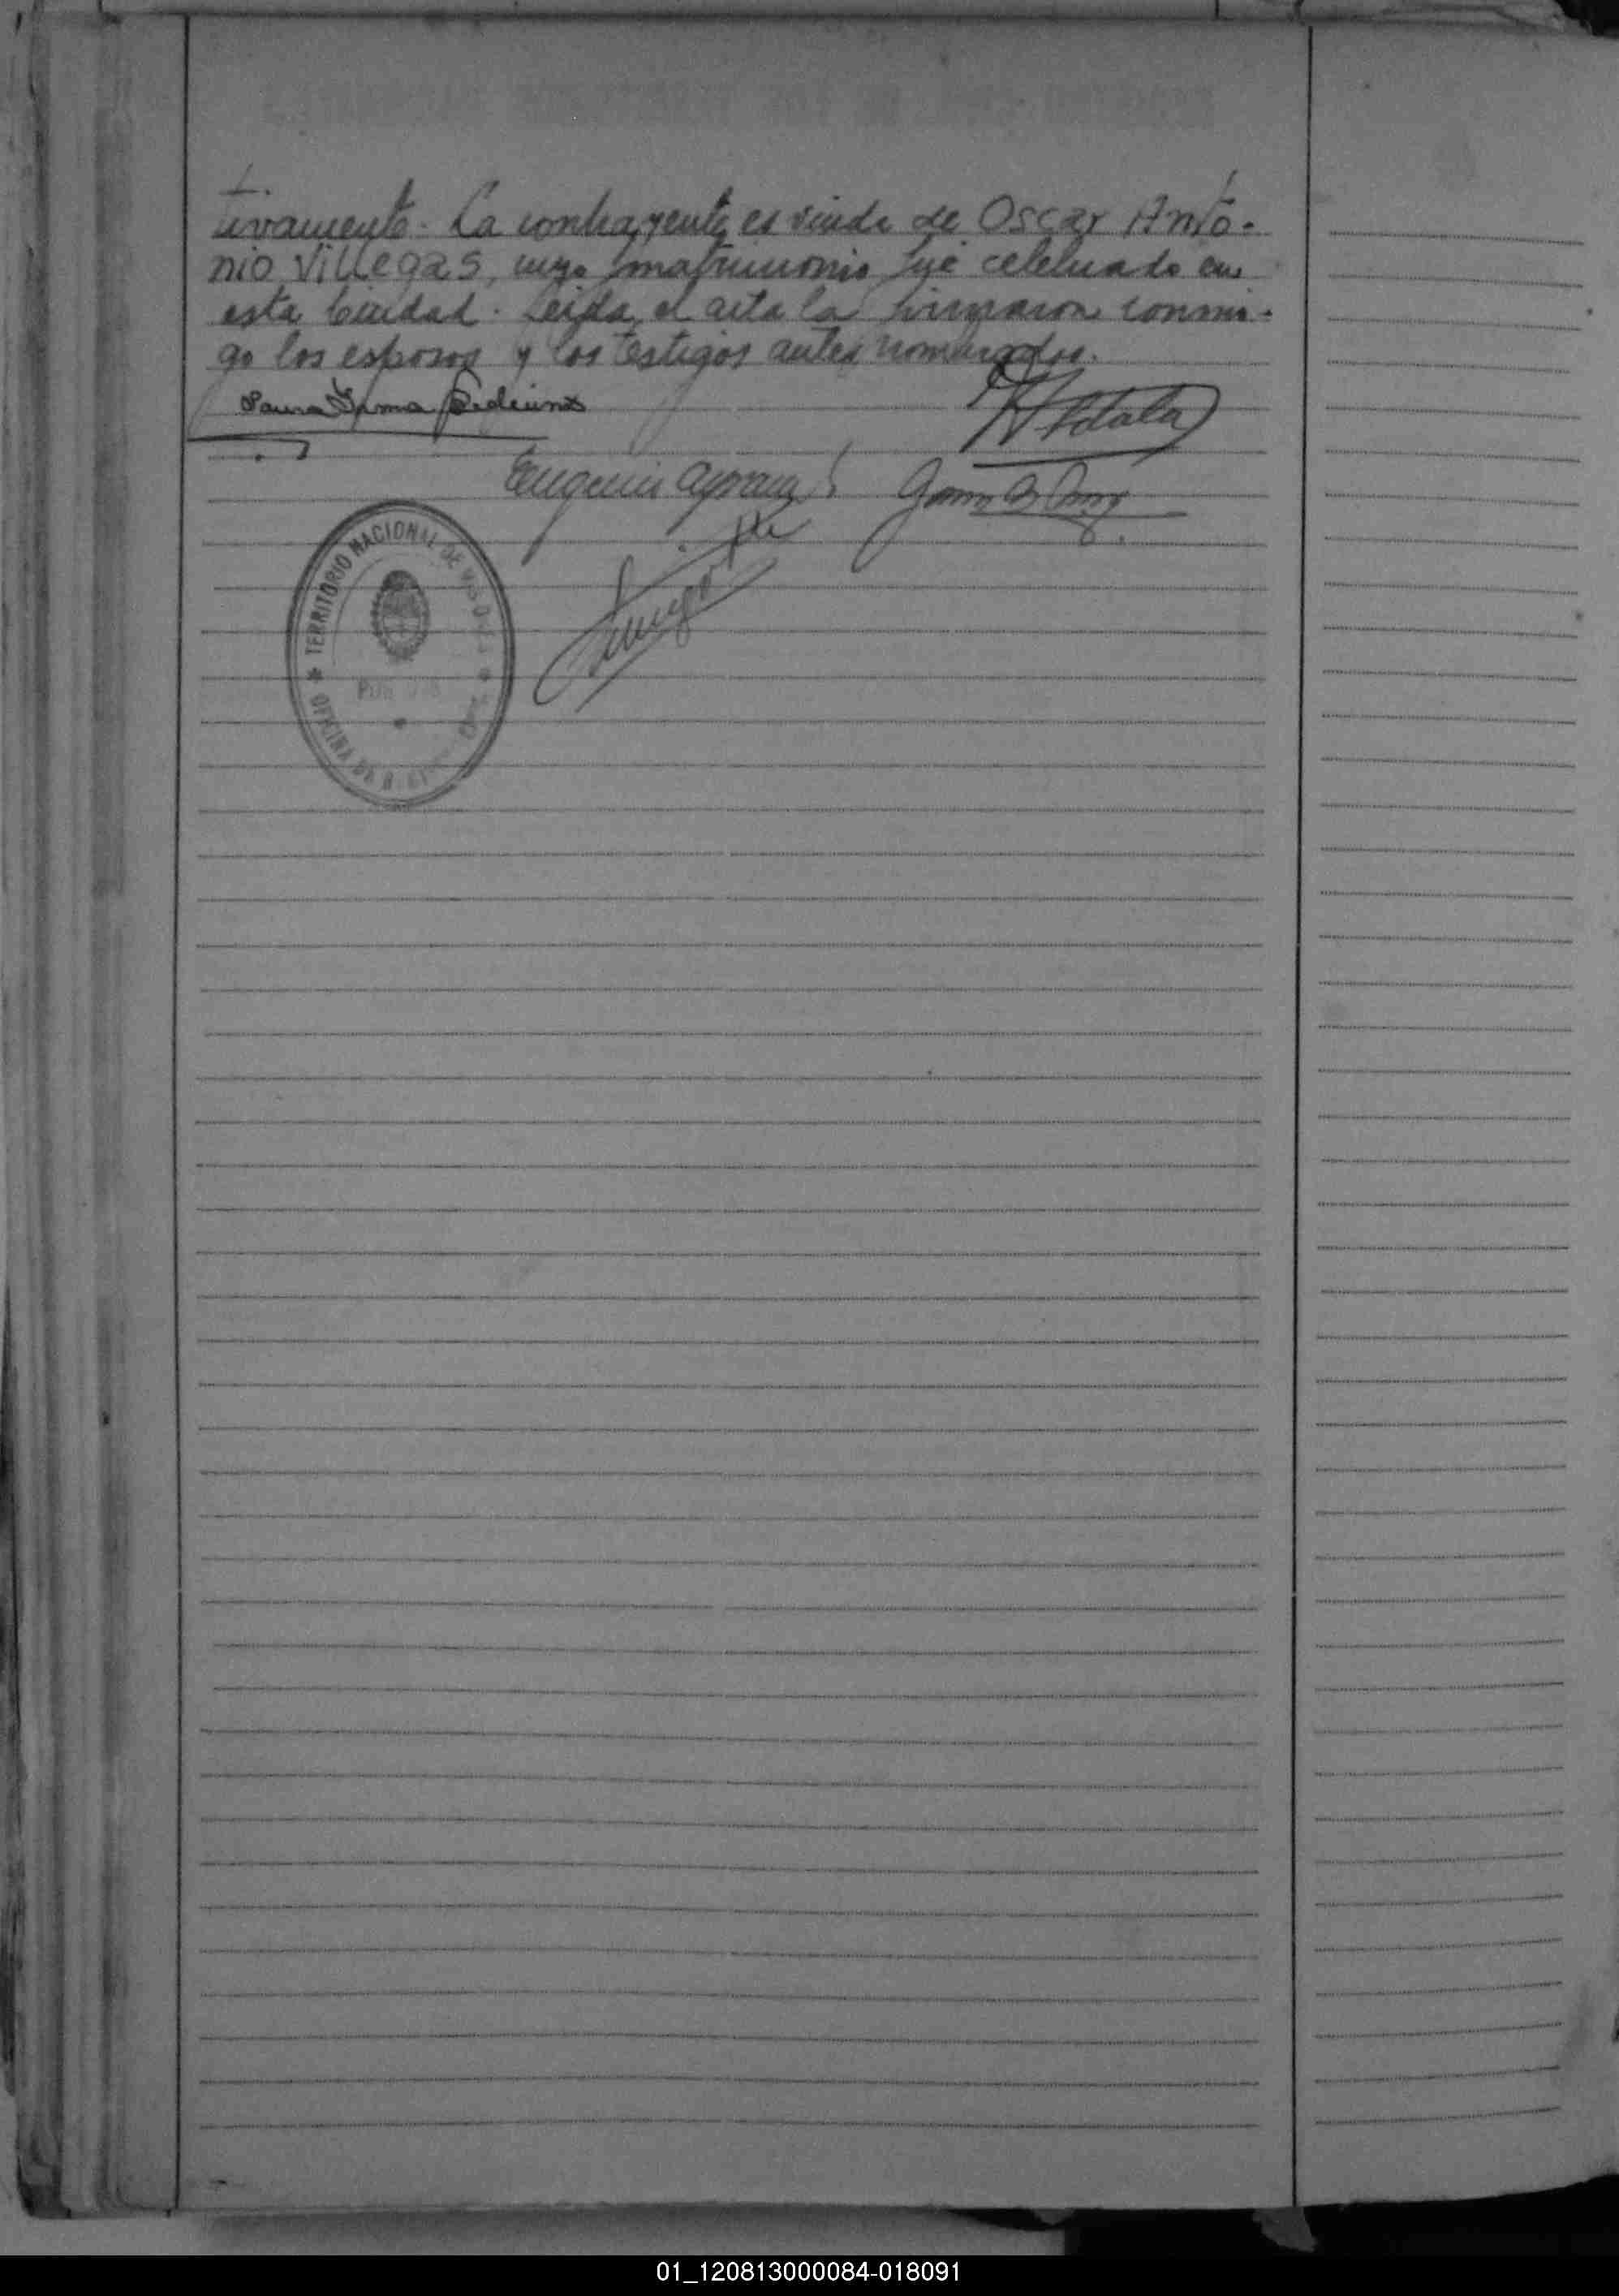 tivamente. La contrayente es viuda de Oscar Anto-
nio Villegas, cuyo matrimonio fué celebrado en
esta Ciudad. Leída el acta la firmaron conmi-
go los esposos y los testigos antes nombrados.
Laura Irma
Eugenia
TERRITORIO NACIONAL DE
OFICINA DE
01_120813000084-018091